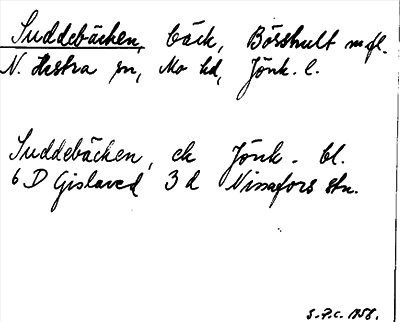 Suddebäcken, bäck, Börshult m fl.
N. Hestra sn, Mo hd, Jönk. l.
Suddebäcken, ek Jönk. bl.
6 D Gislaved 3 d Nissafors stn.
S.P.C. 1958.